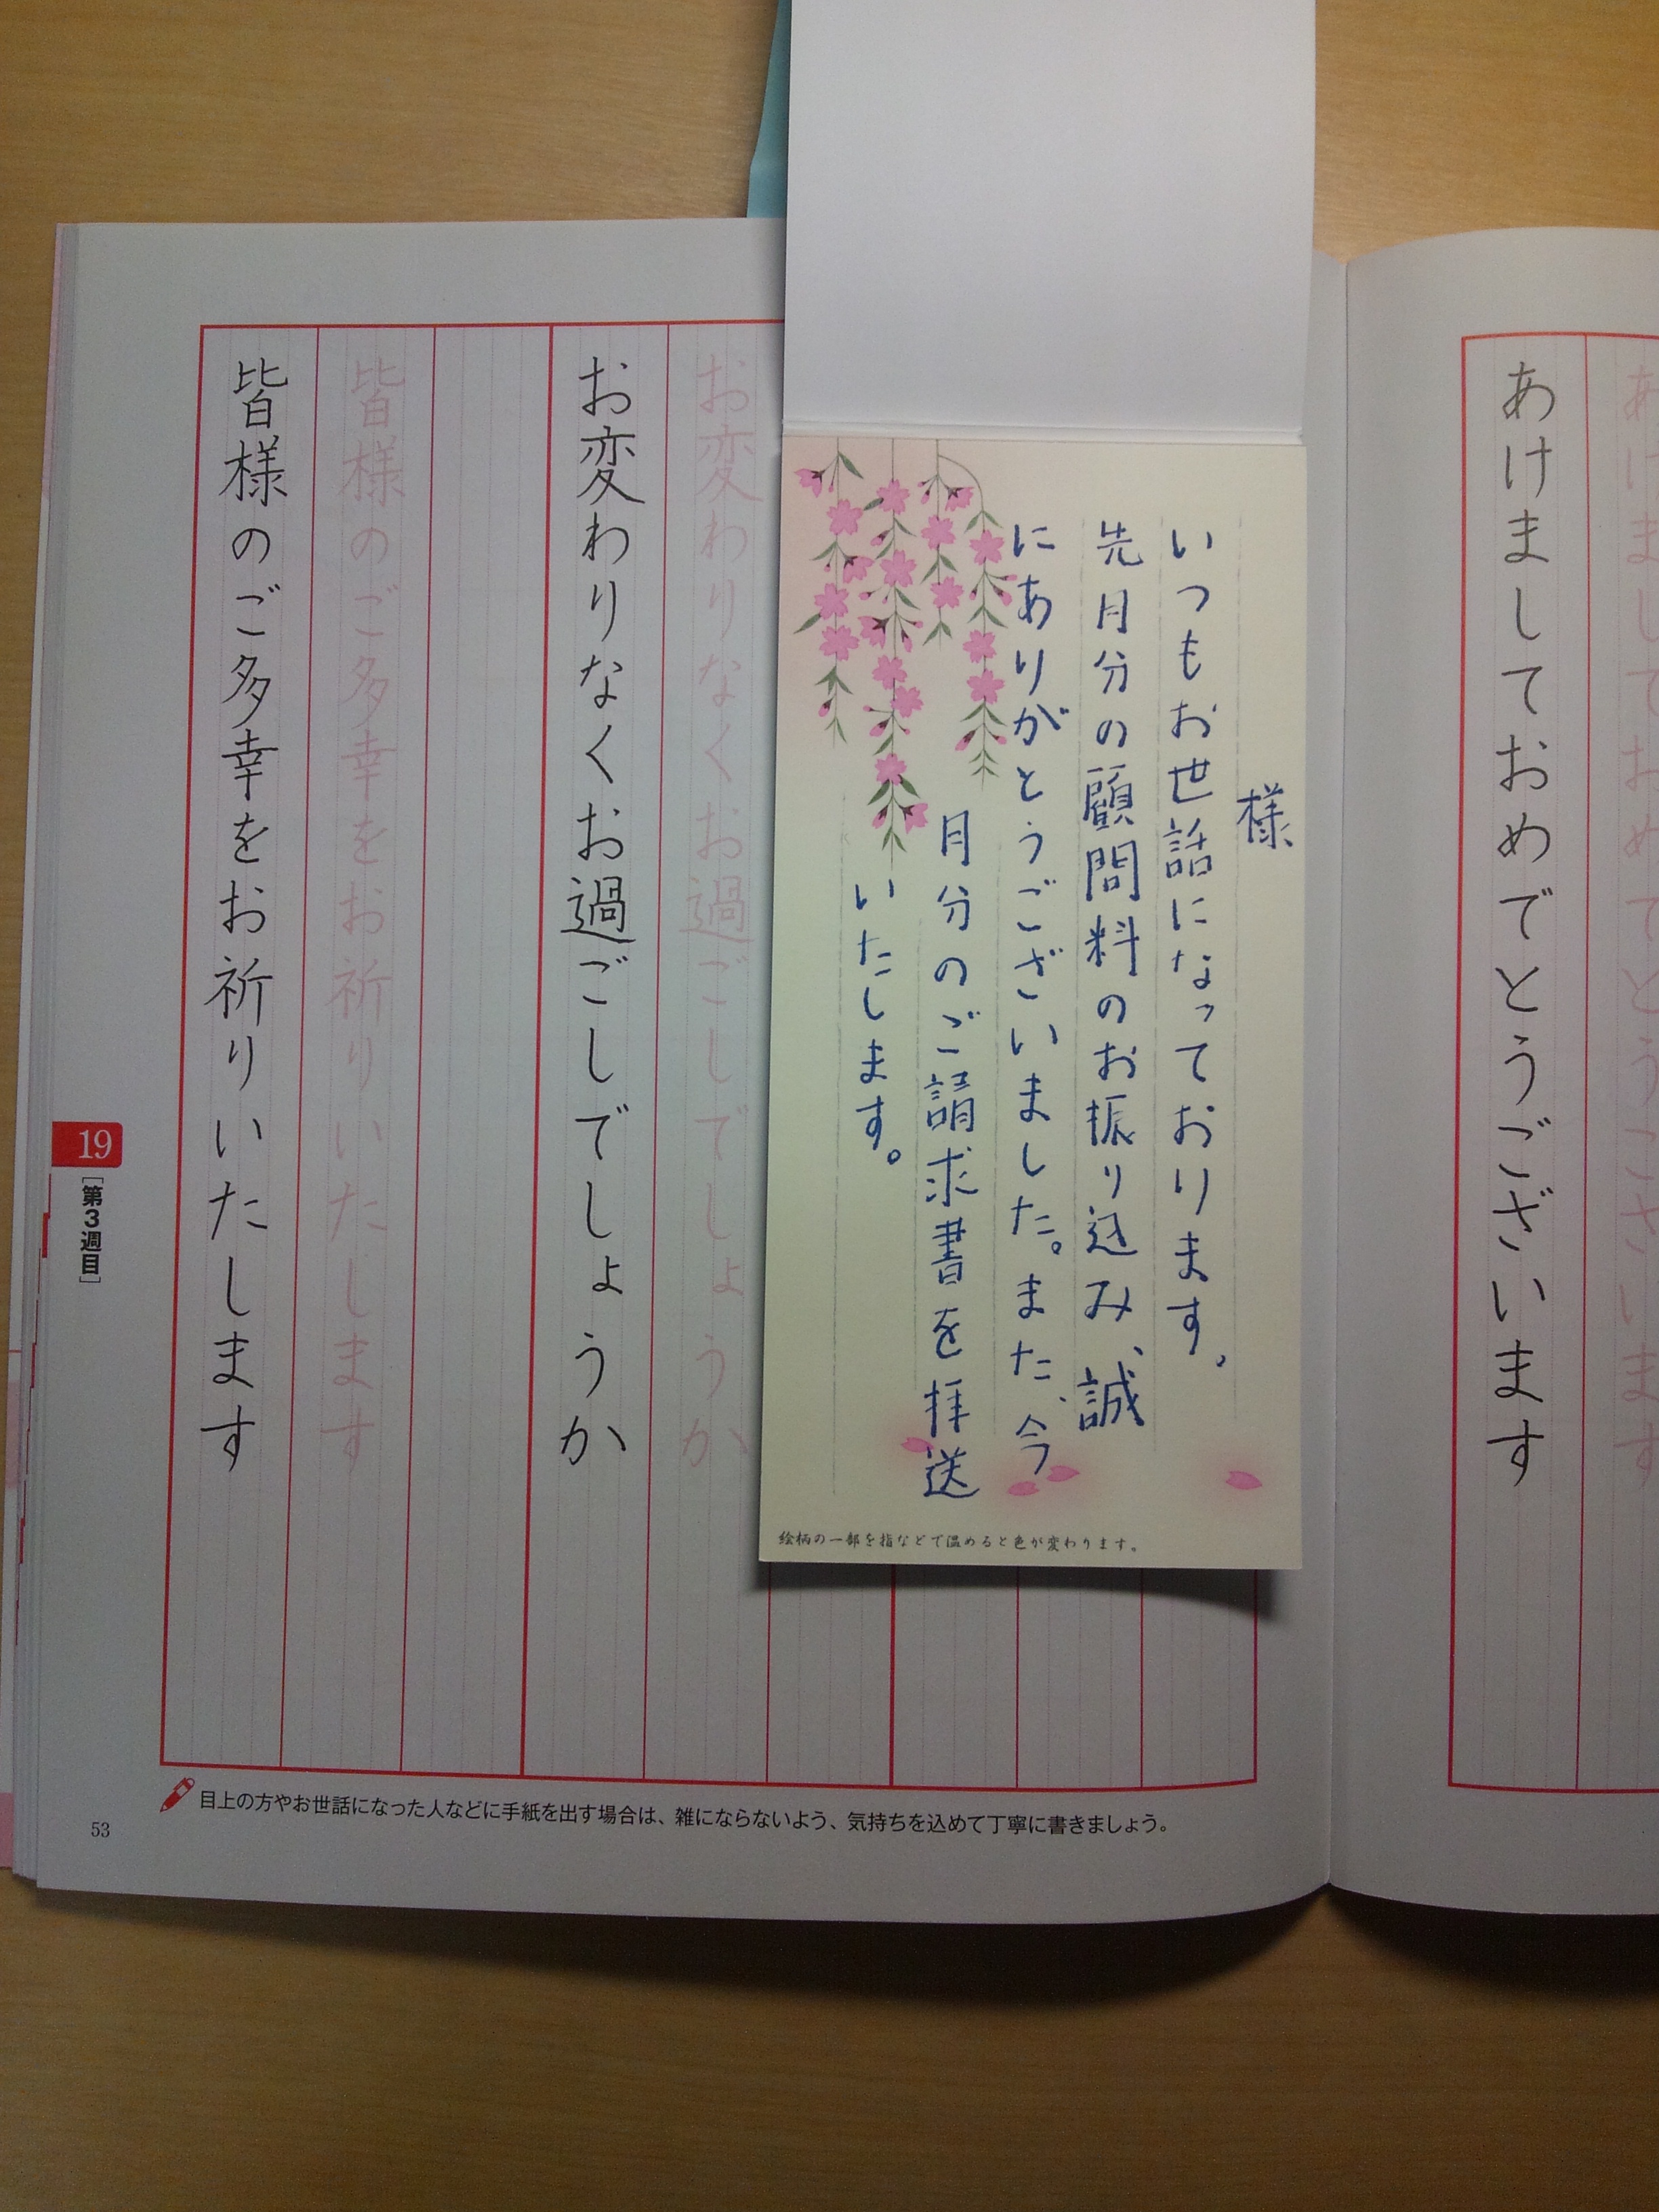 あけましておめでとうございます
あけましておめでとうございます
様
いつもお世話になっております。
先月分の顧問料のお振り込み、誠
にありがとうございました。また、今
月分のご請求書を拝送
いたします。
絵柄の一部を指などで温めると色が変わります。
お変わりなくお過ごしでしょうか
お変わりなくお過ごしでしょうか
皆様のご多幸をお祈りいたします
皆様のご多幸をお祈りいたします
19
[第3週目]
目上の方やお世話になった人などに手紙を出す場合は、雑にならないよう、気持ちを込めて丁寧に書きましょう。
53